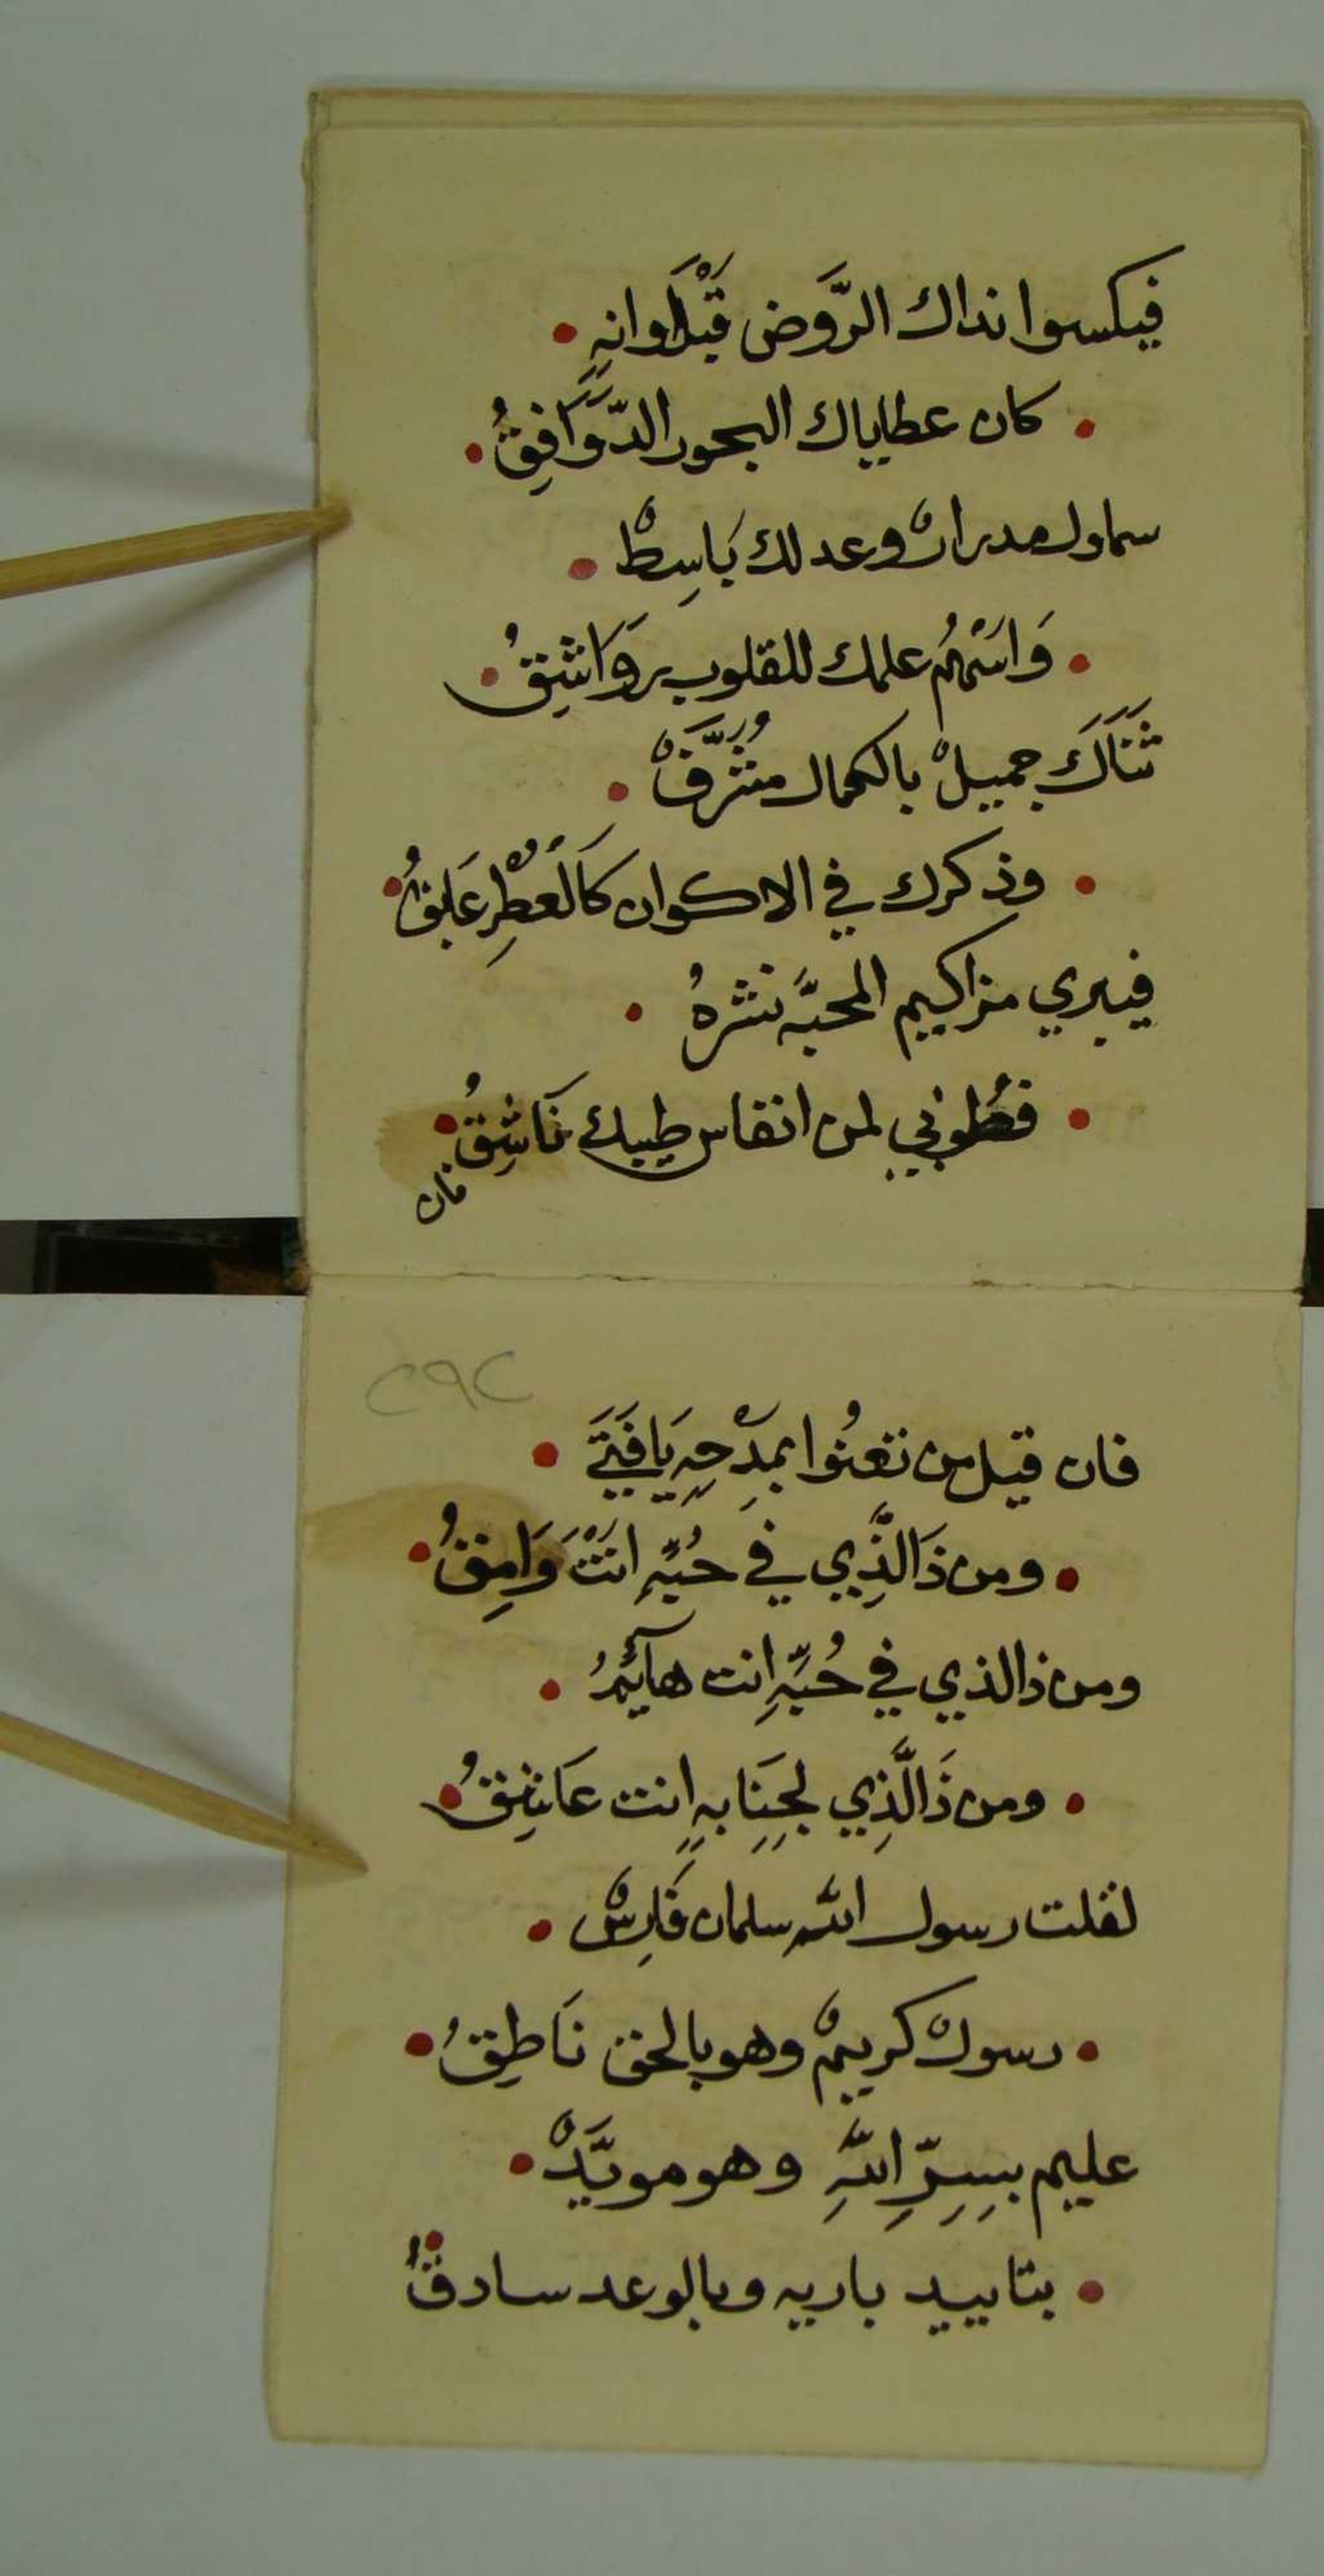 فيكسوا نداك الرَّوض قَبْلَ اوانهِ
كان عطاياك البحور الدَّوَافِقُ
سماوك مدرارٌ وعدلك بَاسِطٌ
وَاسْهُم علمك للقلوب روَاشِقُ
ثَنَاكَ جميلٌ بالكمال مُشَرَّفٌ
وذكرك في الاكوان كَالْعُطْرِ عَابقُ
فيبري مزاكيم المحبَّه نشرهُ
فطُوبي لمن انفاس طيبك نَاشِقُ
فان
٢٩٢
فان قيل من تعنُوا بمدْحِهِ يَا فَتَي
ومن ذَالَّذِي في حُبِّهِ انتَ وَامِقُ
ومن ذالذي في حُبِّهِ انت هآئمُ
ومن ذَالَّذِي لجِنَابهِ انت عَاشِقُ
لقلت رسول الله سلمان فَارِسٌ
رسولٌ كريمٌ وهو بالحق نَاطِقُ
عليم بسِرِّ اللهِ وهو مويَّدٌ
بتاييد باريه وبالوعد سادقُ